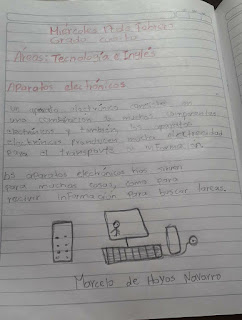 Miércoles 17 de Febrero
Grado cuarto
Áreas: Tecnología e Inglés
Aparatos electrónicos
Un aparato electrónico consiste en
una combinación de muchos componentes
electrónicos y también los aparatos
electrónicos producen electricidad
para el transporte la información
Los aparatos electrónicos nos sirven
para muchas cosas como para
recibir información para buscar tareas.
Marcelo de Hoyos Navarro